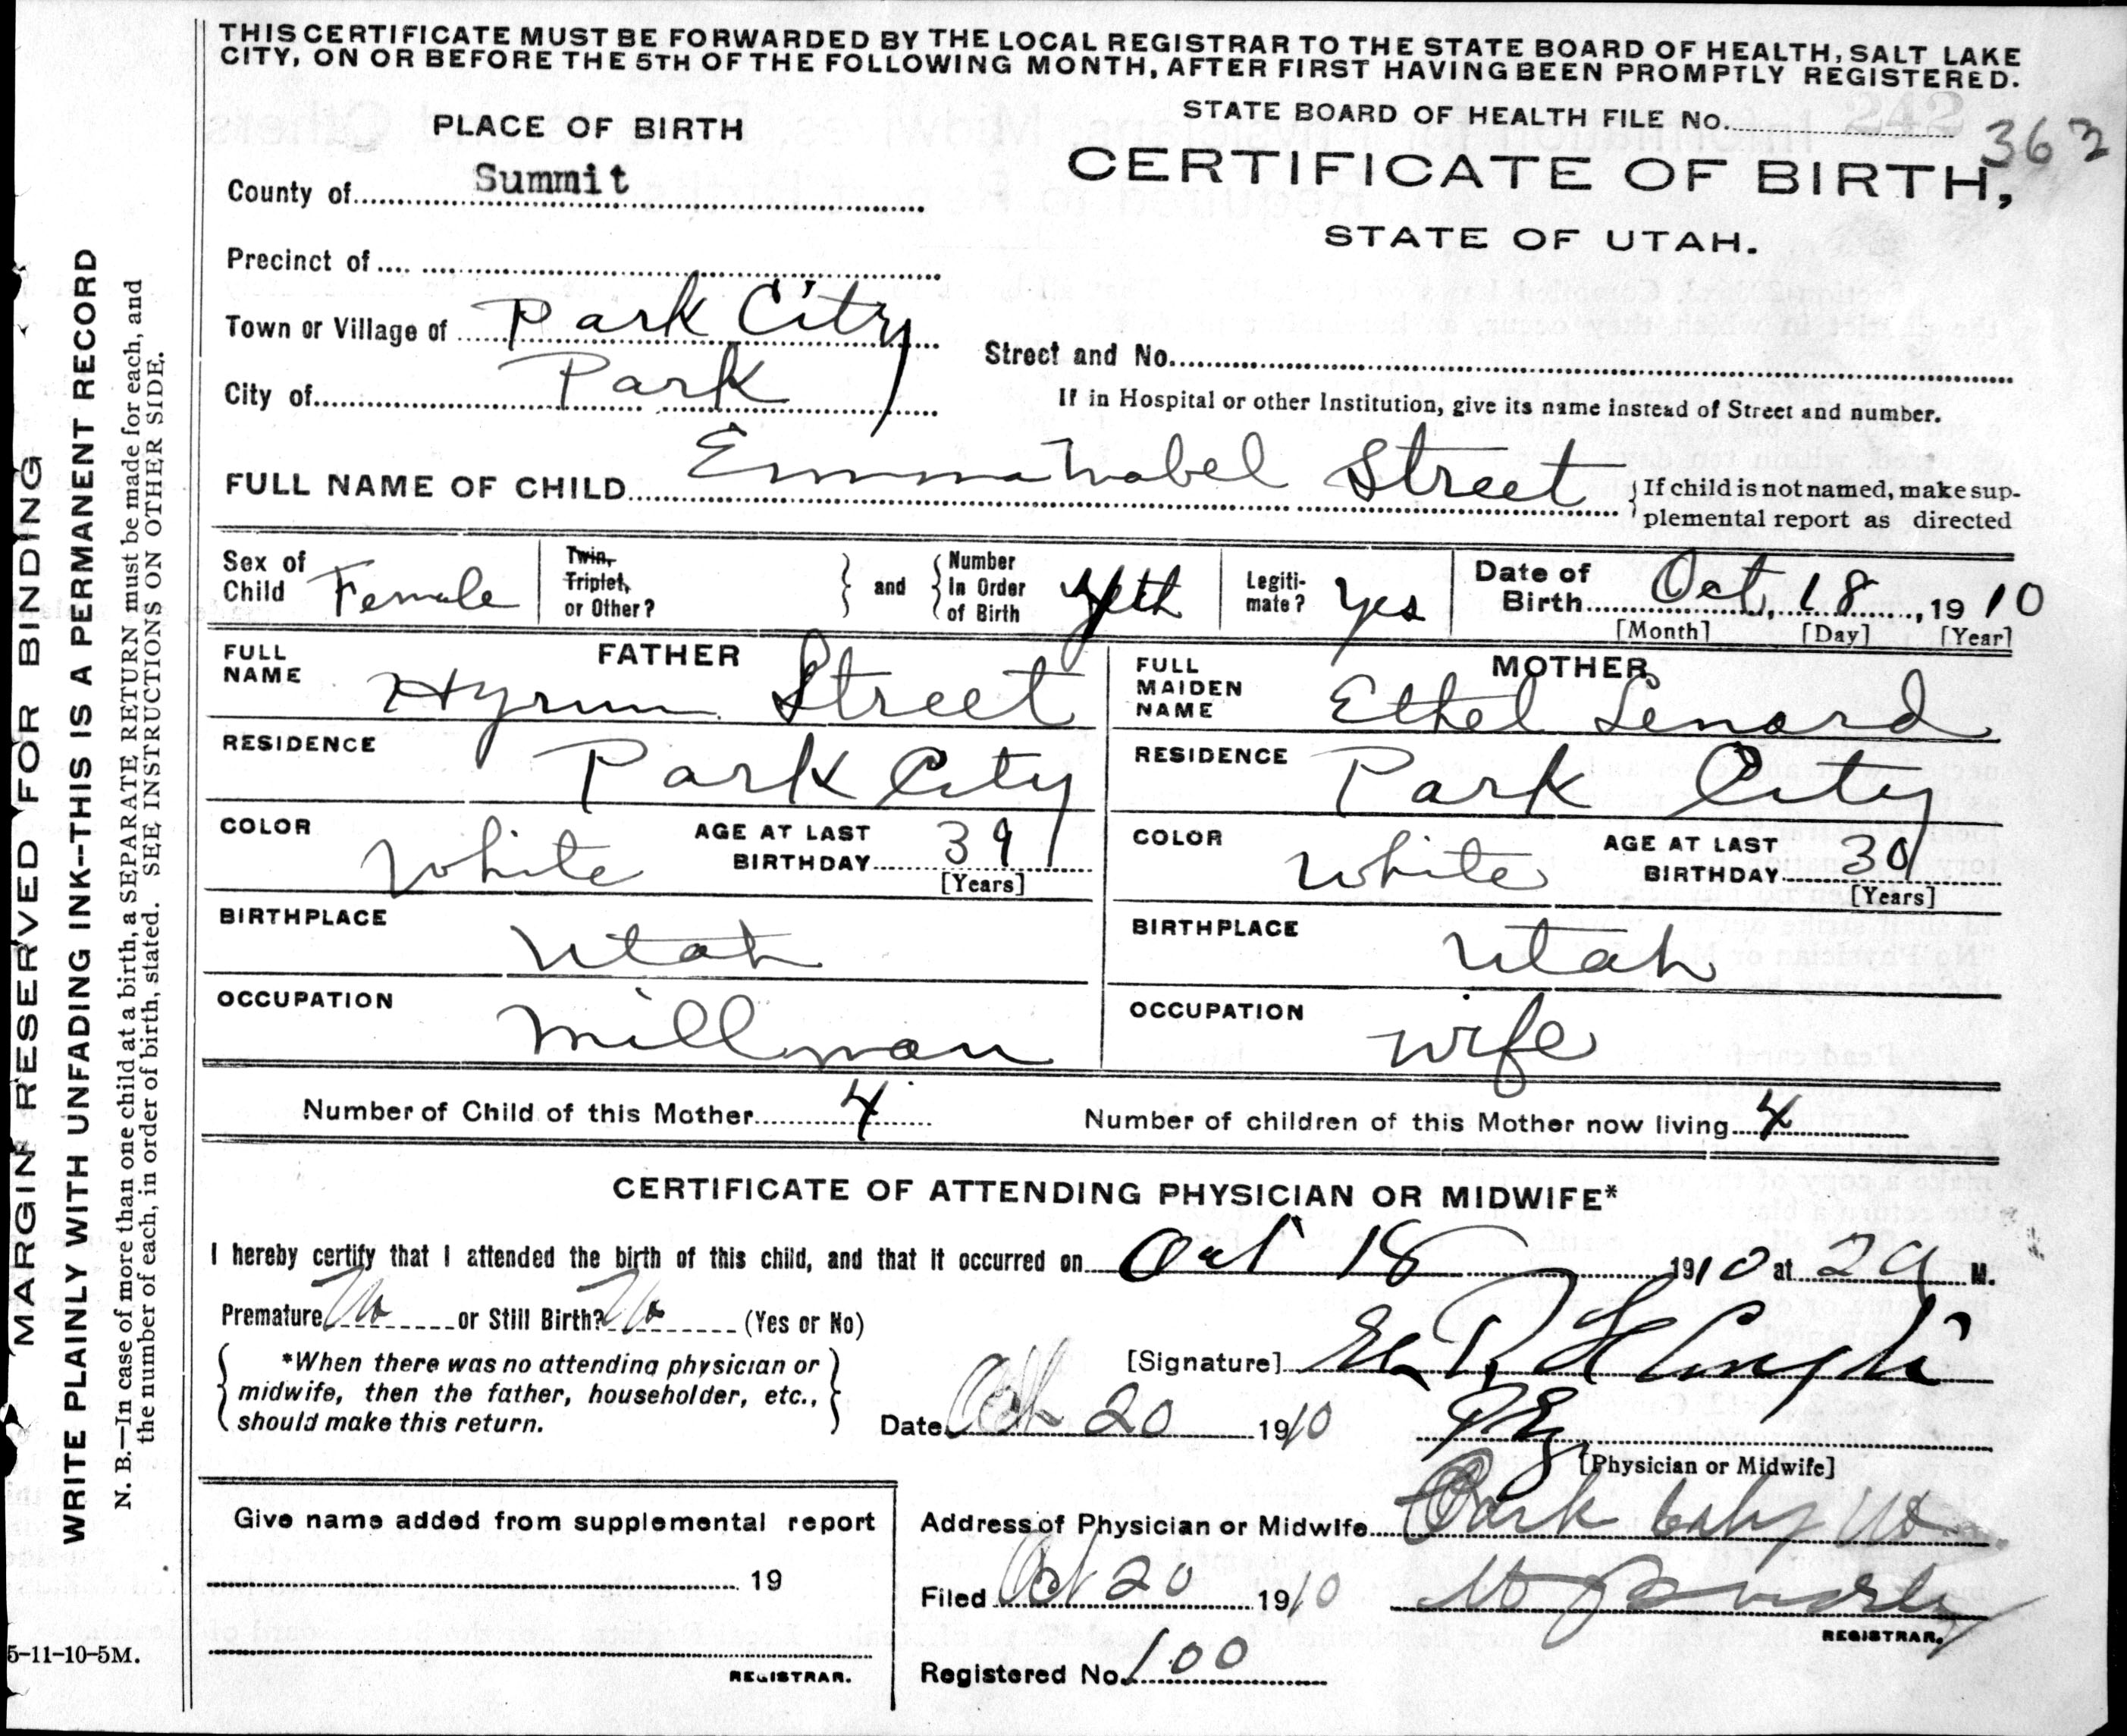 THIS CERTIFICATE MUST BE FORWARDED BY THE LOCAL REGISTRAR TO THE STATE BOARD OF HEALTH, SALT LAKE
CITY, ON OR BEFORE THE 5TH OF THE FOLLOWING MONTH, AFTER FIRST HAVING BEEN PROMPTLY REGISTERED.
PLACE OF BIRTH
STATE BOARD OF HEALTH FILE No. 242 363
County of Summit
CERTIFICATE OF BIRTH,
STATE OF UTAH.
Precinct of
Town or Village of Park City
Street and No.
City of Park
If in Hospital or other Institution, give its name instead of Street and number.
FULL NAME OF CHILD Emma Mabel Street
If child is not named, make sup-
plemental report as directed
Sex of Child Female
Twin, Triplet, or Other?
and
Number In Order of Birth 4th
Legiti-mate? yes
Date of Birth Oct, 18, 1910
[Month] [Day] [Year]
FATHER
FULL NAME Hyrum Street
MOTHER
FULL MAIDEN NAME Ethel Lenard
RESIDENCE Park City
RESIDENCE Park City
COLOR White AGE AT LAST BIRTHDAY 39 [Years]
COLOR White AGE AT LAST BIRTHDAY 30 [Years]
BIRTHPLACE Utah
BIRTHPLACE Utah
OCCUPATION Millman
OCCUPATION wife
Number of Child of this Mother 4
Number of children of this Mother now living 4
CERTIFICATE OF ATTENDING PHYSICIAN OR MIDWIFE*
I hereby certify that I attended the birth of this child, and that it occurred on Oct 18 1910 at 2 a M.
Premature No or Still Birth? No (Yes or No)
*When there was no attending physician or
midwife, then the father, householder, etc.,
should make this return.
[Signature]
Date Oct 20 1910
[Physician or Midwife]
Give name added from supplemental report
19
REGISTRAR.
Address of Physician or Midwife Park City Ut
Filed Oct 20 1910
REGISTRAR.
Registered No. 100
5-11-10-5M.
MARGIN RESERVED FOR BINDING
WRITE PLAINLY WITH UNFADING INK--THIS IS A PERMANENT RECORD
N. B.—In case of more than one child at a birth, a SEPARATE RETURN must be made for each, and
the number of each, in order of birth, stated. SEE INSTRUCTIONS ON OTHER SIDE.